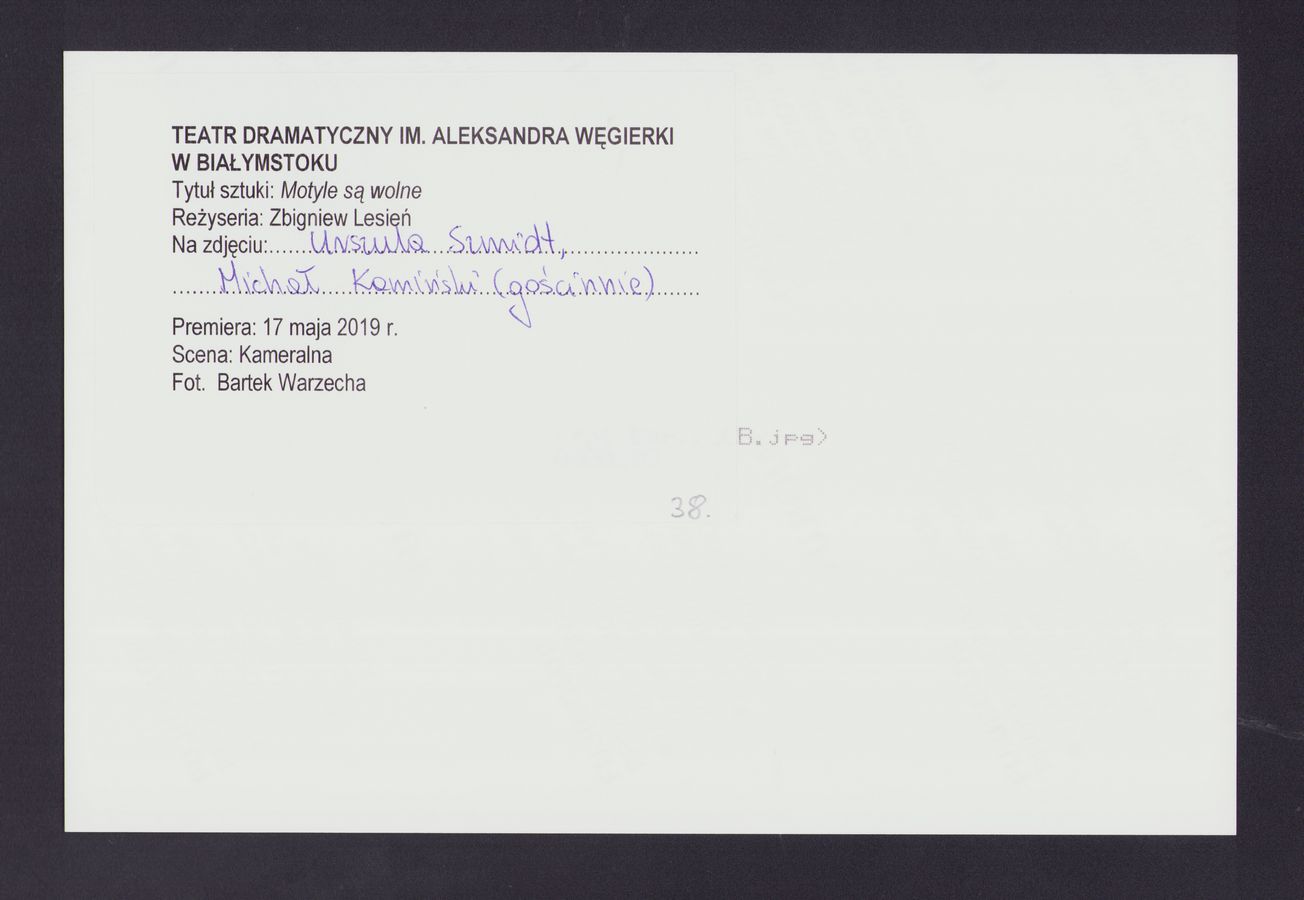 TEATR DRAMATYCZNY IM. ALEKSANDRA WĘGIERKI
W BIAŁYMSTOKU
Tytuł sztuki: Motyle są wolne
Reżyseria: Zbigniew Lesień
Na zdjęciu:.....Urszula Szmidt,......................
.......Michał Kamiński (gościnnie).......
Premiera: 17 maja 2019 r.
Scena: Kameralna
Fot. Bartek Warzecha
B.jpg)
38.